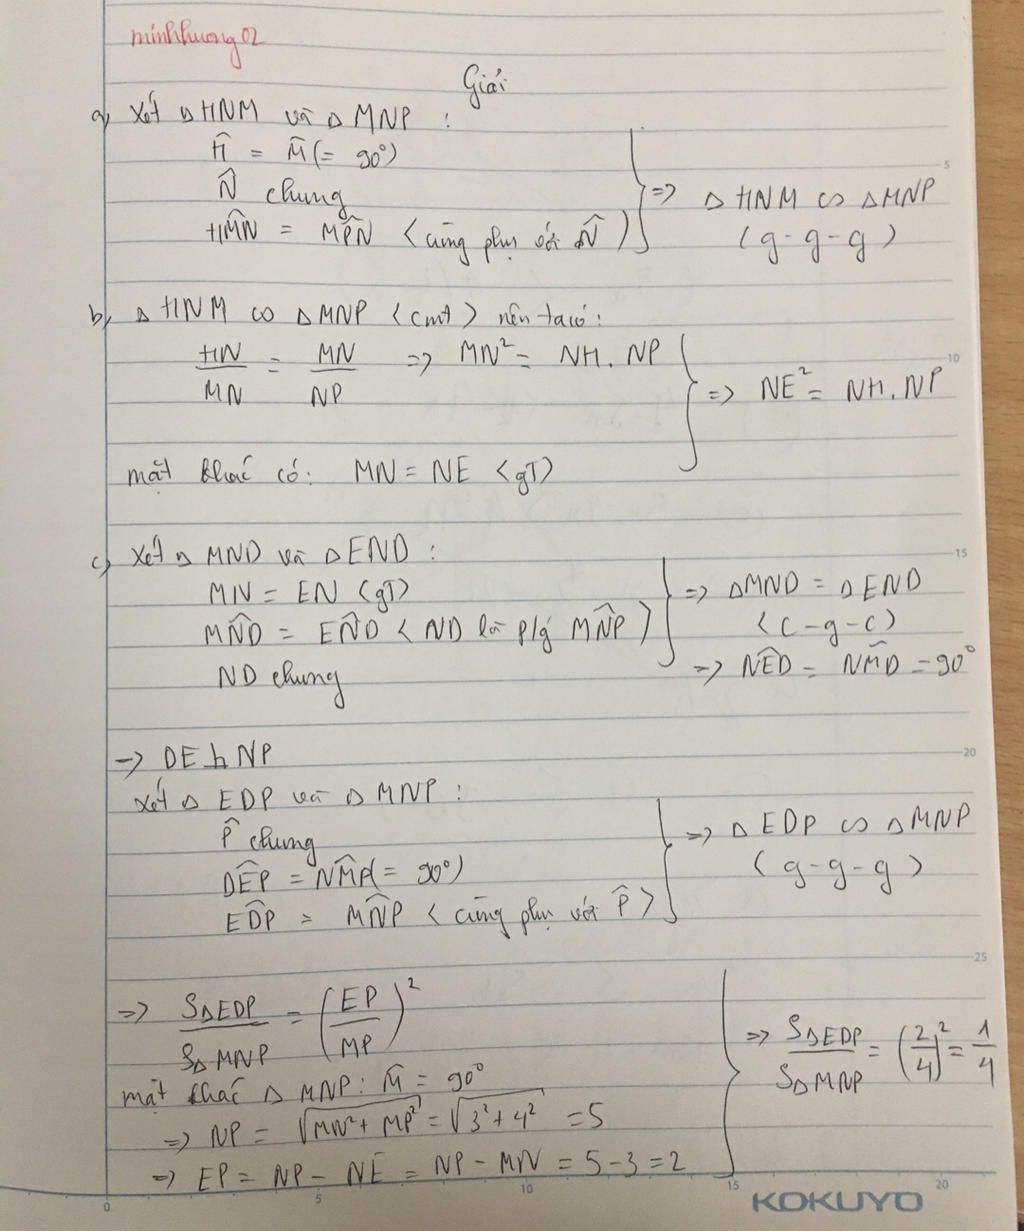 minhhuong02
Giải
a, Xét Δ HNM và Δ MNP :
Ĥ = M̂ (= 90°)
N̂ chung
HM̂N = MP̂N <cùng phụ với N̂ )
=> Δ HNM ∽ Δ MNP
(g-g-g)
b, Δ HNM ∽ Δ MNP <cmt> nên ta có :
HN/MN = MN/NP => MN² = NH . NP
=> NE² = NH . NP
mặt khác có: MN = NE <gT>
c, Xét Δ MND và Δ END :
MN = EN <gT>
MN̂D = EN̂D < ND là p/g MN̂P )
ND chung
=> Δ MND = Δ END
<c-g-c)
=> NÊD = NM̂D = 90°
-> DE ⊥ NP
Xét Δ EDP và Δ MNP :
P̂ chung
DÊP = NM̂P (= 90°)
ED̂P = MN̂P < cùng phụ với P̂ >
=> Δ EDP ∽ Δ MNP
(g-g-g)
=> SΔEDP/SΔMNP = (EP/MP)²
mặt khác Δ MNP : M̂ = 90°
=> NP = √MN² + MP² = √3² + 4² = 5
=> EP = NP - NE = NP - MN = 5 - 3 = 2
=> SΔEDP/SΔMNP = (2/4)² = 1/4
5
10
15
20
25
0 5 10 15 20
KOKUYO